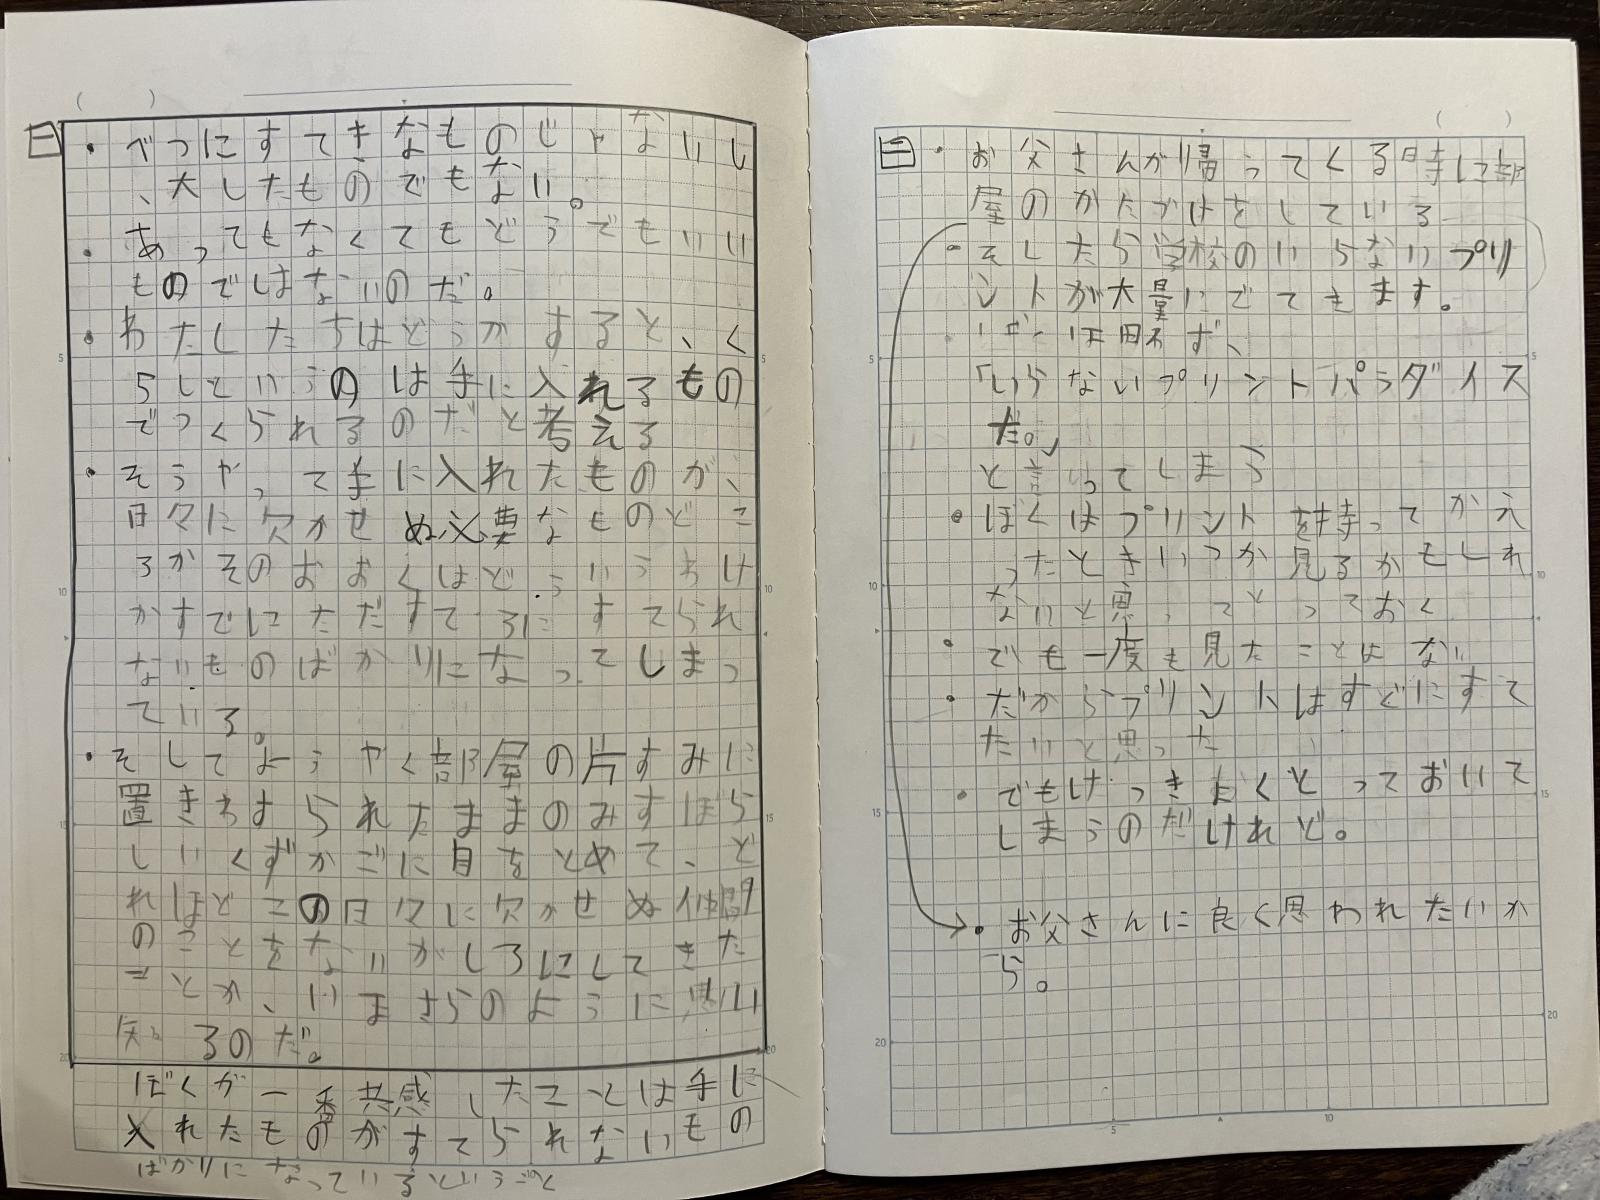 一
・べつにすてきなものじゃないし
、大したものでもない。
・あってもなくてもどうでもいい
ものではないのだ。
・わたしたちはどうかすると、く
らしというのは手に入れるもの
でつくられるのだと考える
・そうやって手に入れたものが、
日々に欠かせぬ必要なものどこ
ろかそのおおくはどういうわけ
かすでにただすてるにすてられ
ないものばかりになってしまっ
ている。
・そしてようやく部屋の片すみに
置きわすられたままのみすぼら
しいくずかごに目をとめて、ど
れほどこの日々に欠かせぬ仲間
のことをないがしろにしてきた
ことか、いまさらのように思い
知るのだ。
ぼくが一番共感したことは手に
入れたものがすてられないもの
ばかりになっているということ
二
・お父さんが帰ってくる時に部
屋のかたづけをしている
・そしたら学校のいらないプリ
ントが大量にでてきます。
ず、
「いらないプリントパラダイス
だ。」
と言ってしまう
・ぼくはプリントを持ってかえ
ったときいつか見るかもしれ
ないと思ってとっておく
・でも一度も見たことはない
・だからプリントはすぐにすて
たいと思った
・でもけっきょくとっておいて
しまうのだけれど。
・お父さんに良く思われたいか
ら。